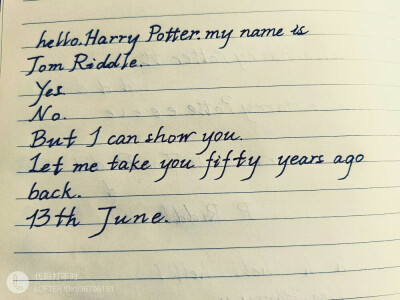 hello.Harry Potter.my name is
Tom Riddle.
Yes
No.
But I can show you.
Let me take you fifty years ago
back.
13th June.